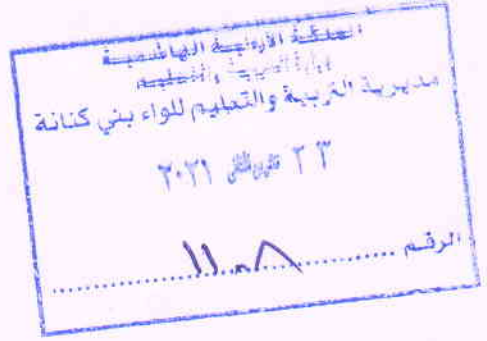 المملكة الأردنية الهاشمية
وزارة التربية والتعليم
مديرية التربية والتعليم للواء بني كنانة
٢٣ تشرين الثاني ٢٠٢١
الرقم ........ ١١٠٨ ........